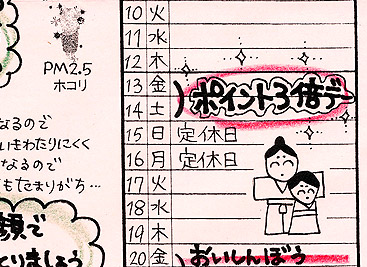 PM2.5
ホコリ
なるので
いきわたりにくく
なるので
もたまりがち…
顔で
とりましょう
10 火
11 水
12 木
13 金
14 土
ポイント3倍デー
15 日 定休日
16 月 定休日
17 火
18 水
19 木
20 金 おいしんぼう